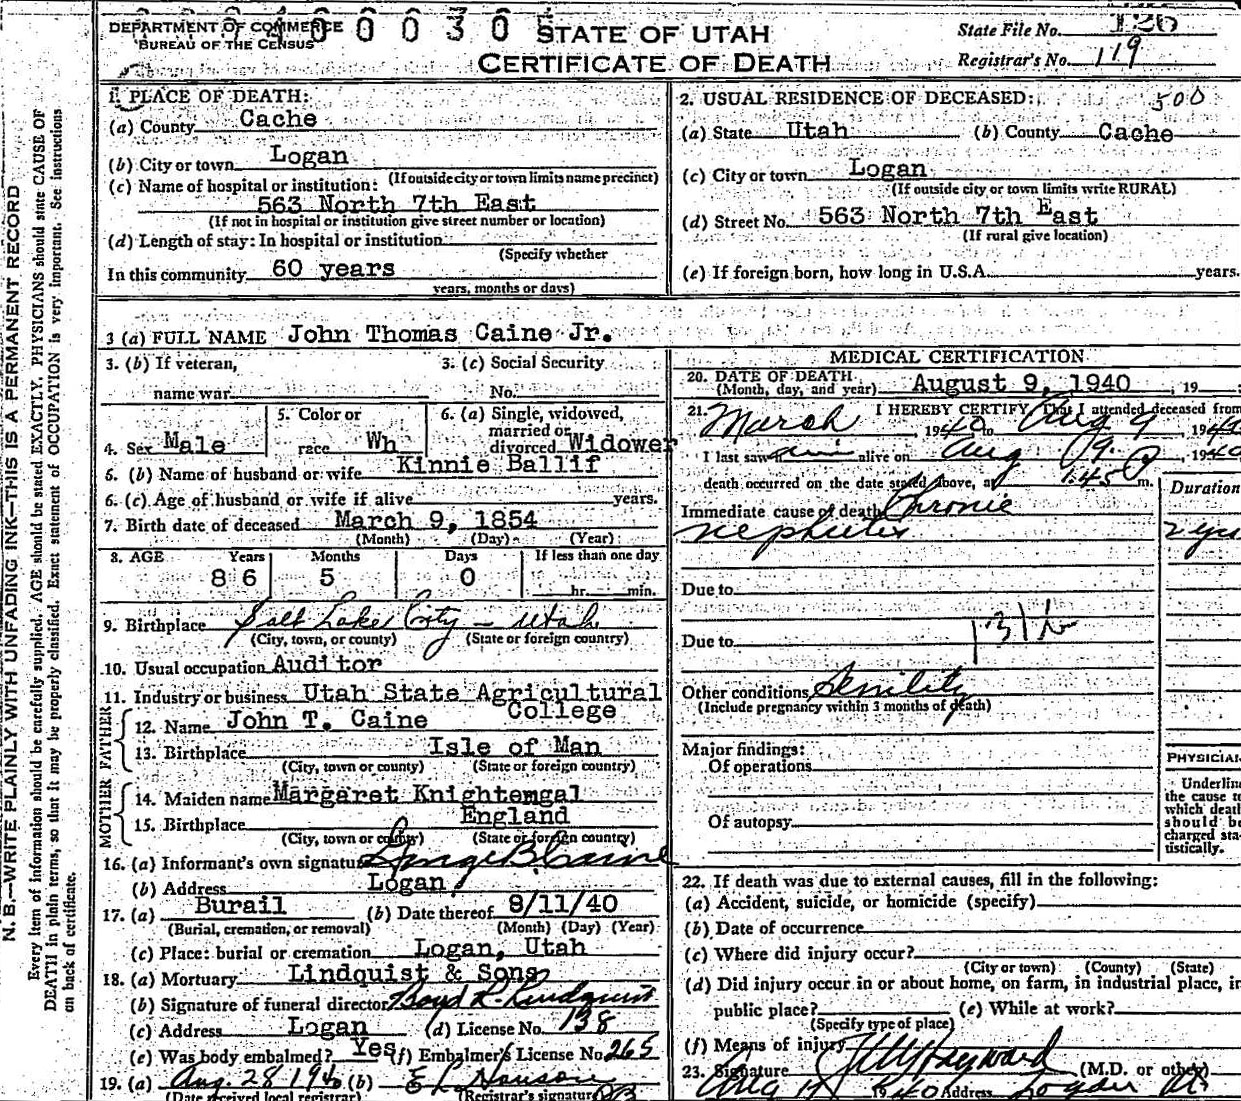 DEPARTMENT OF COMMERCE
BUREAU OF THE CENSUS
STATE OF UTAH
CERTIFICATE OF DEATH
State File No. 126
Registrar's No. 119
N. B.—WRITE PLAINLY WITH UNFADING INK—THIS IS A PERMANENT RECORD
Every item of information should be carefully supplied. AGE should be stated EXACTLY. PHYSICIANS should state CAUSE OF
DEATH in plain terms, so that it may be properly classified. Exact statement of OCCUPATION is very important. See instructions
on back of certificate.
1. PLACE OF DEATH:
(a) County Cache
(b) City or town Logan
(If outside city or town limits name precinct)
(c) Name of hospital or institution:
563 North 7th East
(If not in hospital or institution give street number or location)
(d) Length of stay: In hospital or institution
(Specify whether
In this community 60 years
years, months or days)
2. USUAL RESIDENCE OF DECEASED: 500
(a) State Utah (b) County Cache
(c) City or town Logan
(If outside city or town limits write RURAL)
(d) Street No. 563 North 7th East
(If rural give location)
(e) If foreign born, how long in U.S.A. years.
3 (a) FULL NAME John Thomas Caine Jr.
3. (b) If veteran, 3. (c) Social Security
name war No.
4. Sex Male
5. Color or
race Wh
6. (a) Single, widowed,
married or
divorced Widower
6. (b) Name of husband or wife Kinnie Ballif
6. (c) Age of husband or wife if alive years.
7. Birth date of deceased March 9, 1854
(Month) (Day) (Year)
8. AGE Years Months Days If less than one day
86 5 0 hr. min.
9. Birthplace Salt Lake City - Utah
(City, town, or county) (State or foreign country)
10. Usual occupation Auditor
11. Industry or business Utah State Agricultural
College
FATHER
12. Name John T. Caine
13. Birthplace Isle of Man
(City, town or county) (State or foreign country)
MOTHER
14. Maiden name Margaret Knightemgal
15. Birthplace England
(City, town or county) (State or foreign country)
16. (a) Informant's own signature George B. Caine
(b) Address Logan
17. (a) Burail (b) Date thereof 8/11/40
(Burial, cremation, or removal) (Month) (Day) (Year)
(c) Place: burial or cremation Logan, Utah
18. (a) Mortuary Lindquist & Sons
(b) Signature of funeral director Boyd R. Lindquist
(c) Address Logan (d) License No. 138
(e) Was body embalmed? Yes (f) Embalmer's License No. 265
19. (a) Aug. 28 1940 (b)
(Date received local registrar) (Registrar's signature)
MEDICAL CERTIFICATION
20. DATE OF DEATH
(Month, day, and year) August 9, 1940, 19
21. I HEREBY CERTIFY, That I attended deceased from
March, 1940 to Aug 9, 1940
I last saw him alive on Aug 9, 1940
death occurred on the date stated above, at 1:45 P m.
Immediate cause of death Chronic
nephritis
Duration
2 yrs
Due to
Due to
Other conditions Senility
(Include pregnancy within 3 months of death)
Major findings:
Of operations
Of autopsy
PHYSICIAN
Underline
the cause to
which death
should be
charged sta-
tistically.
22. If death was due to external causes, fill in the following:
(a) Accident, suicide, or homicide (specify)
(b) Date of occurrence
(c) Where did injury occur?
(City or town) (County) (State)
(d) Did injury occur in or about home, on farm, in industrial place, in
public place? (e) While at work?
(Specify type of place)
(f) Means of injury
23. Signature Hayward (M.D. or other)
Aug 1940 Address Logan